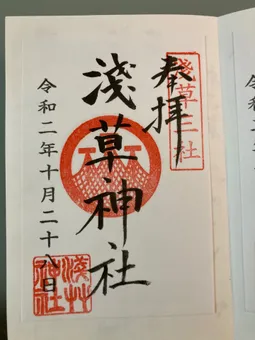 奉拝
淺草三社
淺草神社
令和二年十月二十八日
淺草
神社